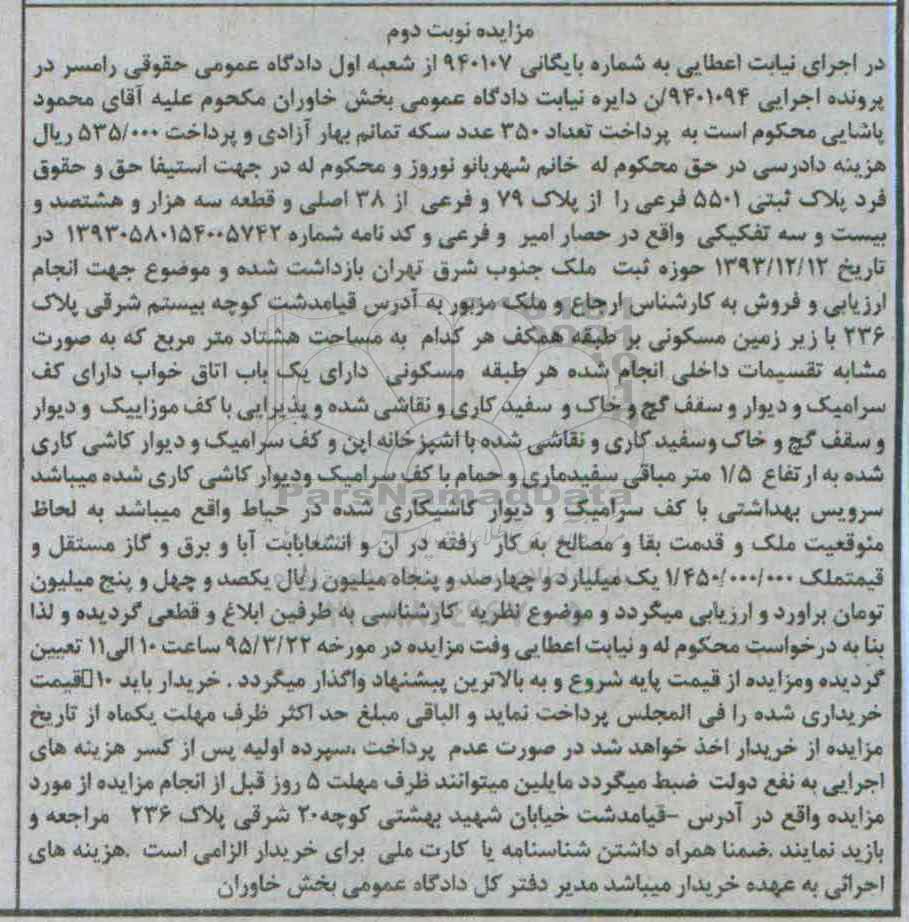 مزایده نوبت دوم
در اجرای نیابت اعطایی به شماره بایگانی ۹۴۰۱۰۷ از شعبه اول دادگاه عمومی حقوقی رامسر در
پرونده اجرایی ۹۴۰۱۰۹۴/ن دایره نیابت دادگاه عمومی بخش خاوران مکحوم علیه آقای محمود
پاشایی محکوم است به پرداخت تعداد ۳۵۰ عدد سکه تمانم بهار آزادی و پرداخت ۵۳۵/۰۰۰ ریال
هزینه دادرسی در حق محکوم له خانم شهربانو نوروز و محکوم له در جهت استیفا حق و حقوق
فرد پلاک ثبتی ۵۵۰۱ فرعی را از پلاک ۷۹ و فرعی از ۳۸ اصلی و قطعه سه هزار و هشتصد و
بیست و سه تفکیکی واقع در حصار امیر و فرعی و کد نامه شماره ۱۳۹۳۰۵۸۰۱۵۴۰۰۵۷۴۲ در
تاریخ ۱۳۹۳/۱۲/۱۲ حوزه ثبت ملک جنوب شرق تهران بازداشت شده و موضوع جهت انجام
ارزیابی و فروش به کارشناس ارجاع و ملک مزبور به آدرس قیامدشت کوچه بیستم شرقی پلاک
۲۳۶ با زیر زمین مسکونی بر طبقه همکف هر کدام به مساحت هشتاد متر مربع که به صورت
مشابه تقسیمات داخلی انجام شده هر طبقه مسکونی دارای یک باب اتاق خواب دارای کف
سرامیک و دیوار و سقف گچ و خاک و سفید کاری و نقاشی شده و پذیرایی با کف موزاییک و دیوار
و سقف گچ و خاک وسفید کاری و نقاشی شده با اشپزخانه اپن و کف سرامیک و دیوار کاشی کاری
شده به ارتفاع ۱/۵ متر مباقی سفیدماری و حمام با کف سرامیک ودیوار کاشی کاری شده میباشد
سرویس بهداشتی با کف سرامیک و دیوار کاشیکاری شده در حیاط واقع میباشد به لحاظ
مئوقعیت ملک و قدمت بقا و مصالح به کار رفته در ان و انشعابابت آبا و برق و گاز مستقل و
قیمتملک ۱/۴۵۰/۰۰۰/۰۰۰ یک میلیارد و چهارصد و پنجاه میلیون ریال یکصد و چهل و پنج میلیون
تومان براورد و ارزیابی میگردد و موضوع نظریه کارشناسی به طرفین ابلاغ و قطعی گردیده و لذا
بنا به درخواست محکوم له و نیابت اعطایی وفت مزایده در مورخه ۹۵/۳/۲۲ ساعت ۱۰ الی ۱۱ تعیین
گردیده ومزایده از قیمت پایه شروع و به بالاترین پیشنهاد واگذار میگردد . خریدار باید ۱۰□قیمت
خریداری شده را فی المجلس پرداخت نماید و الباقی مبلغ حد اکثر ظرف مهلت یکماه از تاریخ
مزایده از خریدار اخذ خواهد شد در صورت عدم پرداخت ،سپرده اولیه پس از کسر هزینه های
اجرایی به نفع دولت ضبط میگردد مایلین میتوانند ظرف مهلت ۵ روز قبل از انجام مزایده از مورد
مزایده واقع در آدرس –قیامدشت خیابان شهید بهشتی کوچه۲۰ شرقی پلاک ۲۳۶ مراجعه و
بازید نمایند .ضمنا همراه داشتن شناسنامه یا کارت ملی برای خریدار الزامی است .هزینه های
اجرائی به عهده خریدار میباشد مدیر دفتر کل دادگاه عمومی بخش خاوران
ParsNamadData